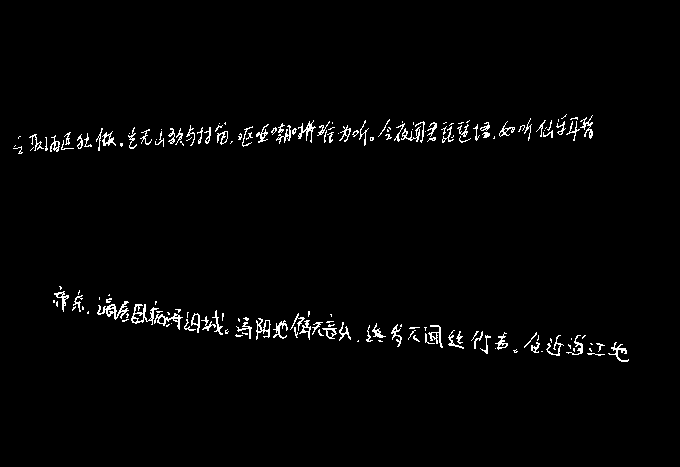 往取酒还独倾。岂无山歌与村笛，呕哑嘲哳难为听。今夜闻君琵琶语，如听仙乐耳暂
帝京，谪居卧病浔阳城。浔阳地僻无音乐，终岁不闻丝竹声。住近湓江地